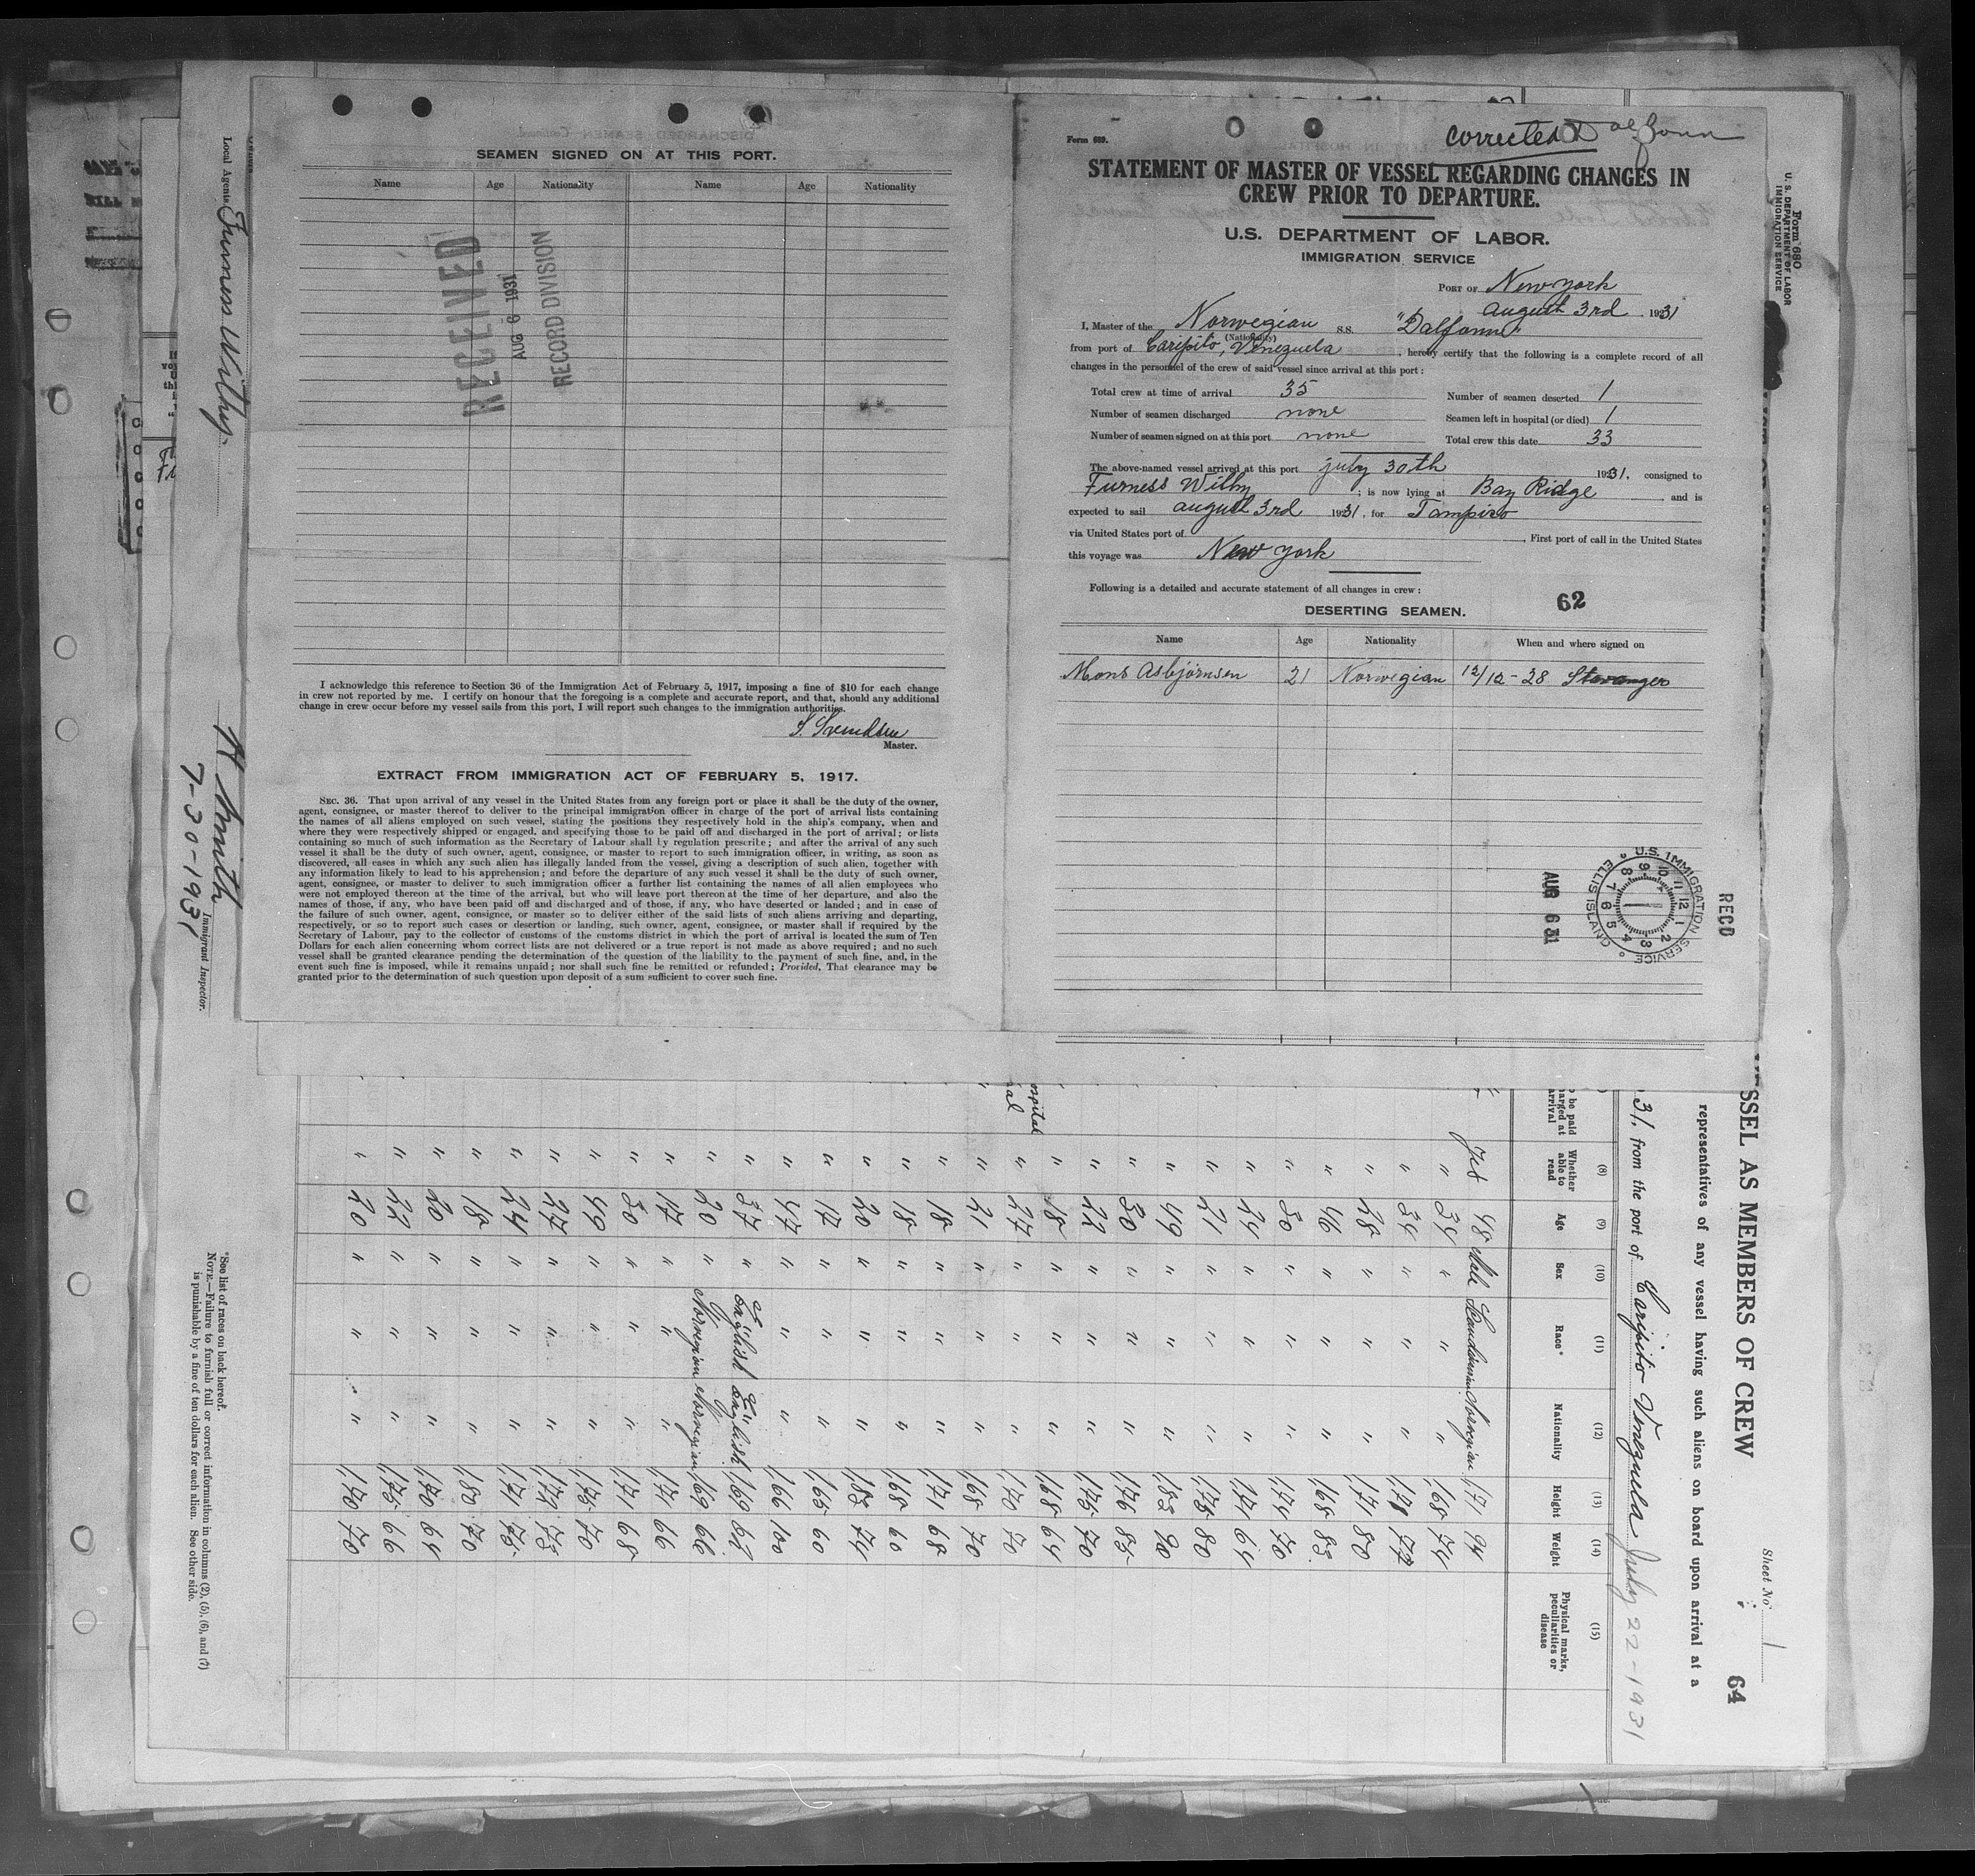 SEAMEN SIGNED ON AT THIS PORT.
Name Age Nationality Name Age Nationality
RECEIVED
AUG 6 1931
RECORD DIVISION
I acknowledge this reference to Section 36 of the Immigration Act of February 5, 1917, imposing a fine of $10 for each change
in crew not reported by me. I certify on honour that the foregoing is a complete and accurate report, and that, should any additional
change in crew occur before my vessel sails from this port, I will report such changes to the immigration authorities.
S. Svendsen
Master.
EXTRACT FROM IMMIGRATION ACT OF FEBRUARY 5, 1917.
SEC. 36. That upon arrival of any vessel in the United States from any foreign port or place it shall be the duty of the owner,
agent, consignee, or master thereof to deliver to the principal immigration officer in charge of the port of arrival lists containing
the names of all aliens employed on such vessel, stating the positions they respectively hold in the ship's company, when and
where they were respectively shipped or engaged, and specifying those to be paid off and discharged in the port of arrival; or lists
containing so much of such information as the Secretary of Labour shall by regulation prescribe; and after the arrival of any such
vessel it shall be the duty of such owner, agent, consignee, or master to report to such immigration officer, in writing, as soon as
discovered, all cases in which any such alien has illegally landed from the vessel, giving a description of such alien, together with
any information likely to lead to his apprehension; and before the departure of any such vessel it shall be the duty of such owner,
agent, consignee, or master to deliver to such immigration officer a further list containing the names of all alien employees who
were not employed thereon at the time of the arrival, but who will leave port thereon at the time of her departure, and also the
names of those, if any, who have been paid off and discharged, and of those, if any, who have deserted or landed; and in case of
the failure of such owner, agent, consignee, or master so to deliver either of the said lists of such aliens arriving and departing,
respectively, or so to report such cases or desertion or landing, such owner, agent, consignee, or master shall if required by the
Secretary of Labour, pay to the collector of customs of the customs district in which the port of arrival is located the sum of Ten
Dollars for each alien concerning whom correct lists are not delivered or a true report is not made as above required; and no such
vessel shall be granted clearance pending the determination of the question of the liability to the payment of such fine, and, in the
event such fine is imposed, while it remains unpaid; nor shall such fine be remitted or refunded; Provided, That clearance may be
granted prior to the determination of such question upon deposit of a sum sufficient to cover such fine.
Form 689.
corrected Dalfonn
STATEMENT OF MASTER OF VESSEL REGARDING CHANGES IN
CREW PRIOR TO DEPARTURE.
U.S. DEPARTMENT OF LABOR.
IMMIGRATION SERVICE
PORT OF New York
August 3rd 1931
I, Master of the Norwegian S.S. "Dalfonn"
(Nationality)
from port of Caripito, Venezuela, hereby certify that the following is a complete record of all
changes in the personnel of the crew of said vessel since arrival at this port:
Total crew at time of arrival 35 Number of seamen deserted 1
Number of seamen discharged none Seamen left in hospital (or died) 1
Number of seamen signed on at this port none Total crew this date 33
The above-named vessel arrived at this port July 30th 1931, consigned to
Furness Withy; is now lying at Bay Ridge and is
expected to sail August 3rd 1931, for Tampico
via United States port of , First port of call in the United States
this voyage was New York
Following is a detailed and accurate statement of all changes in crew:
62
DESERTING SEAMEN.
Name Age Nationality When and where signed on
Mons Asbjørnsen 21 Norwegian 12/12-28 Stavanger
U.S. IMMIGRATION SERVICE ELLIS ISLAND
RECD
AUG 6 31
Form 680
U. S. DEPARTMENT OF LABOR
IMMIGRATION SERVICE
Sheet No. 1
64
SSEL AS MEMBERS OF CREW
representatives of any vessel having such aliens on board upon arrival at a
31, from the port of Caripito Venezuela July 22-1931
(8) (9) (10) (11) (12) (13) (14) (15)
be paid
arged at
arrival
Whether
able to
read
Age
Sex
Race*
Nationality
Height
Weight
Physical marks,
peculiarities or
disease
Yes 48 Male Scandinavian Norwegian 171 94
" 34 " " " 168 74
" 34 " " " 178 72
" 28 " " " 171 80
" 46 " " " 168 83
" 30 " " " 174 70
" 24 " " " 171 64
" 21 " " " 178 80
" 49 " " " 183 90
" 30 " " " 176 85
" 22 " " " 175 70
" 18 " " " 168 64
" 27 " " " 170 70
" 21 " " " 168 70
" 18 " " " 171 68
" 18 " " " 168 60
" 20 " " " 183 74
" 17 " " " 165 60
" 47 " " " 166 100
" 37 " English English 169 62
" 20 " Norwegian Norwegian 169 66
" 17 " " " 171 66
" 30 " " " 171 68
" 49 " " " 175 70
" 27 " " " 173 73
" 24 " " " 171 75
" 18 " " " 180 70
" 20 " " " 170 64
" 22 " " " 175 66
" 20 " " " 170 70
Local Agents Furness Withy
H Smith
Immigrant Inspector.
7-30-1931
*See list of races on back hereof.
NOTE.—Failure to furnish full or correct information in columns (2), (5), (6), and (7)
is punishable by a fine of ten dollars for each alien. See other side.